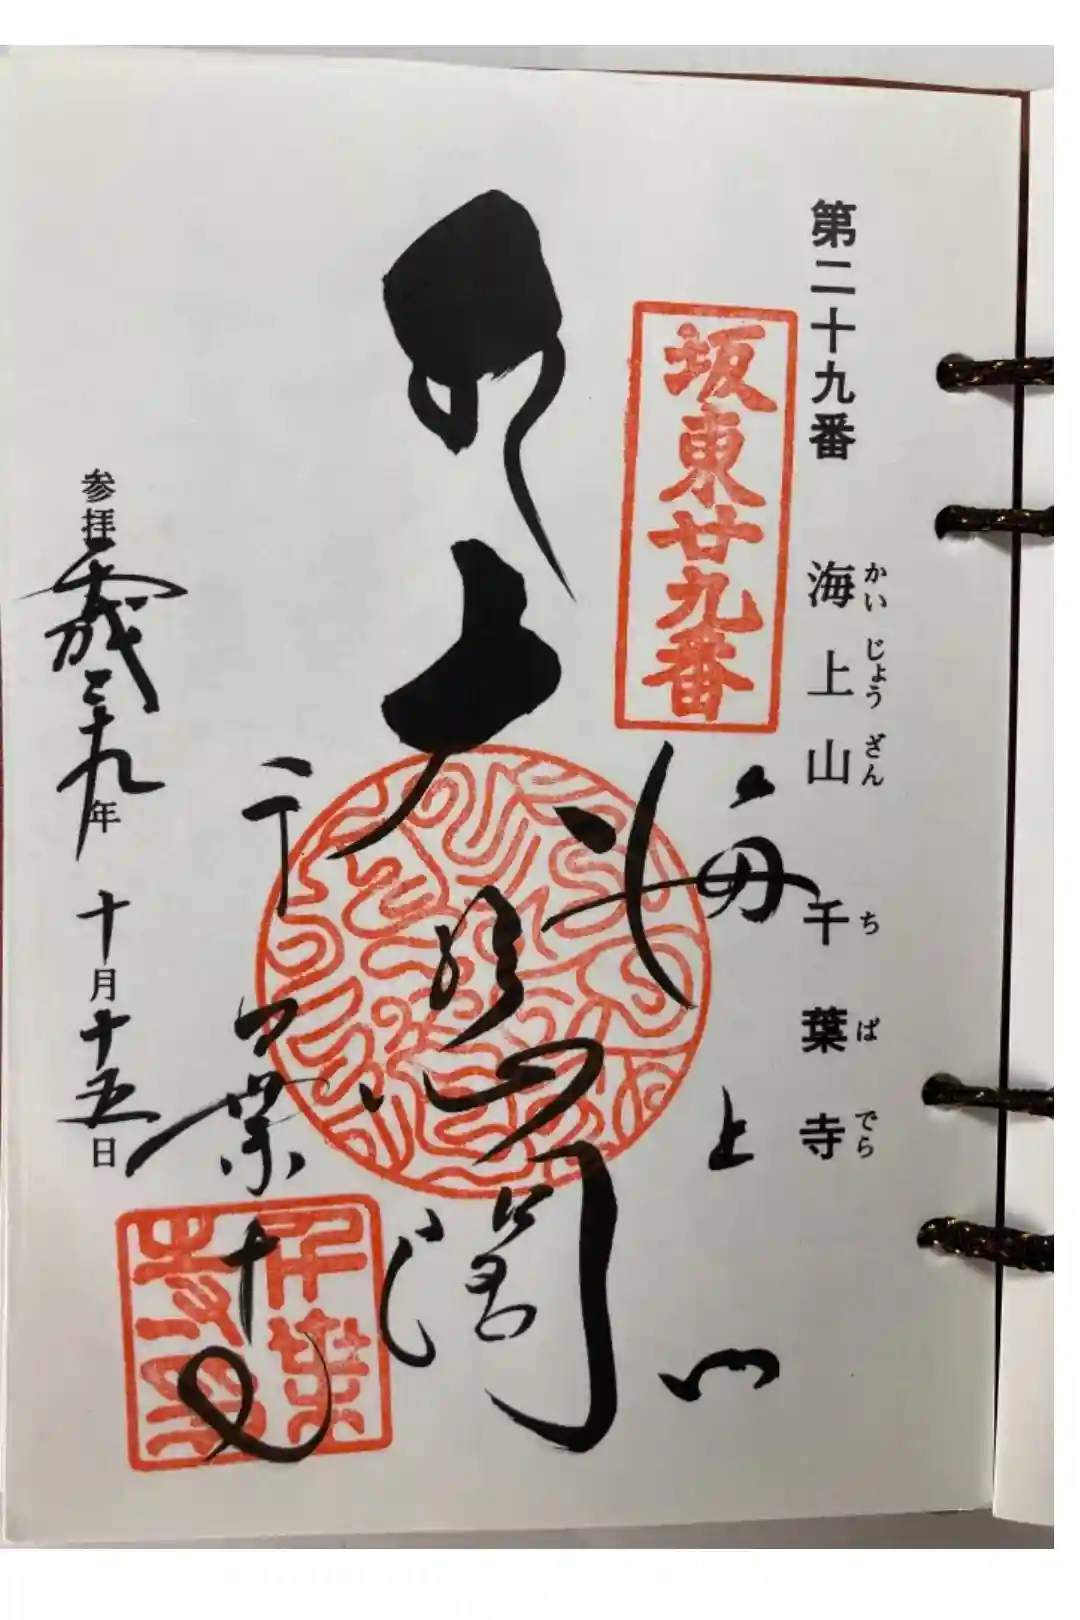 第二十九番 海上山 千葉寺
かいじょうざん ちばでら
坂東廿九番
海上山
大悲閣
千葉寺
参拝平成二十九年十月十五日